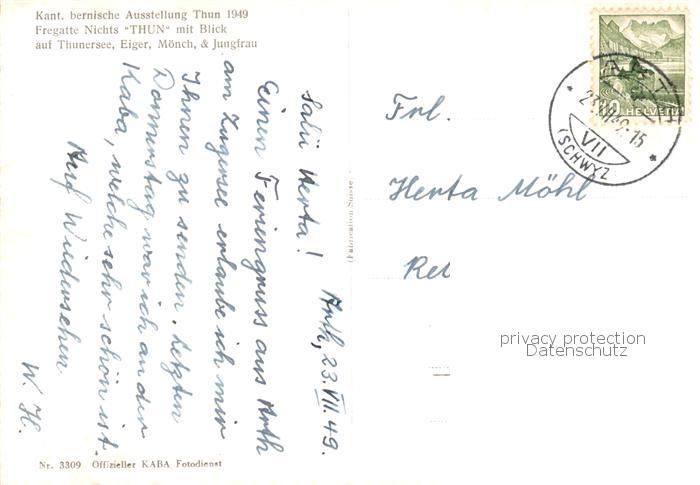 Kant. bernische Ausstellung Thun 1949
Fregatte Nichts "THUN" mit Blick
auf Thunersee, Eiger, Mönch, & Jungfrau
Arth, 23.VII.49.
Salü Herta!
Einen Feriengruss aus Arth
am Zugersee erlaube ich mir
Ihnen zu senden. Letzten
Donnerstag war ich an der
Kaba, welche sehr schön ist.
Auf Wiedersehen
W. H.
Nr. 3309 Offizieller KABA Fotodienst
(Fabrication Suisse)
Frl.
Herta Möhl
HELVETIA
10
VII
(SCHWYZ)
privacy protection
Datenschutz